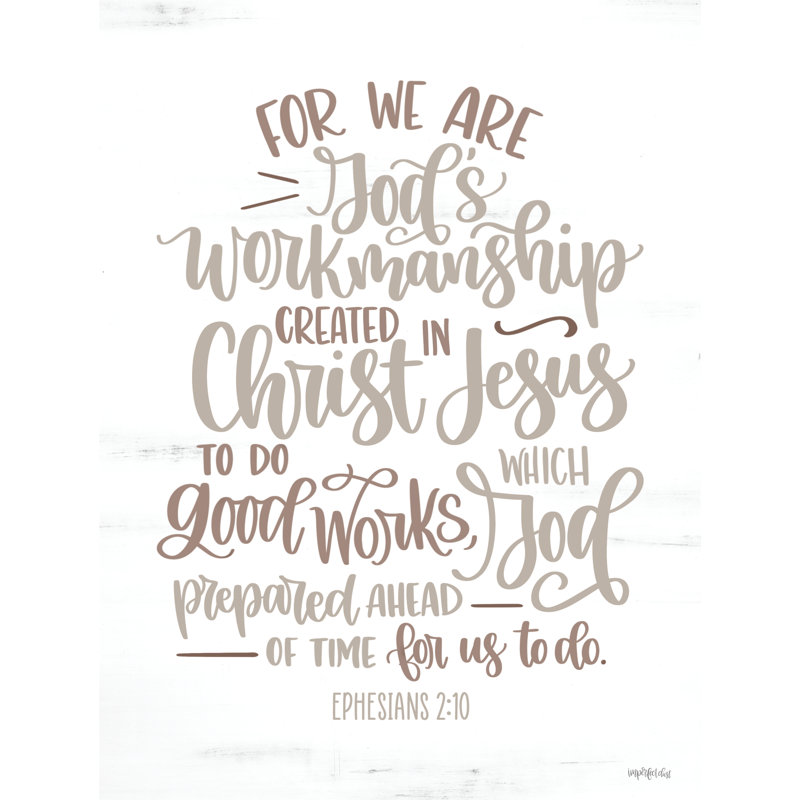 FOR WE ARE
God's
workmanship
CREATED IN
Christ Jesus
TO DO WHICH
good works, God
prepared AHEAD
OF TIME for us to do.
EPHESIANS 2:10
imperfect dust